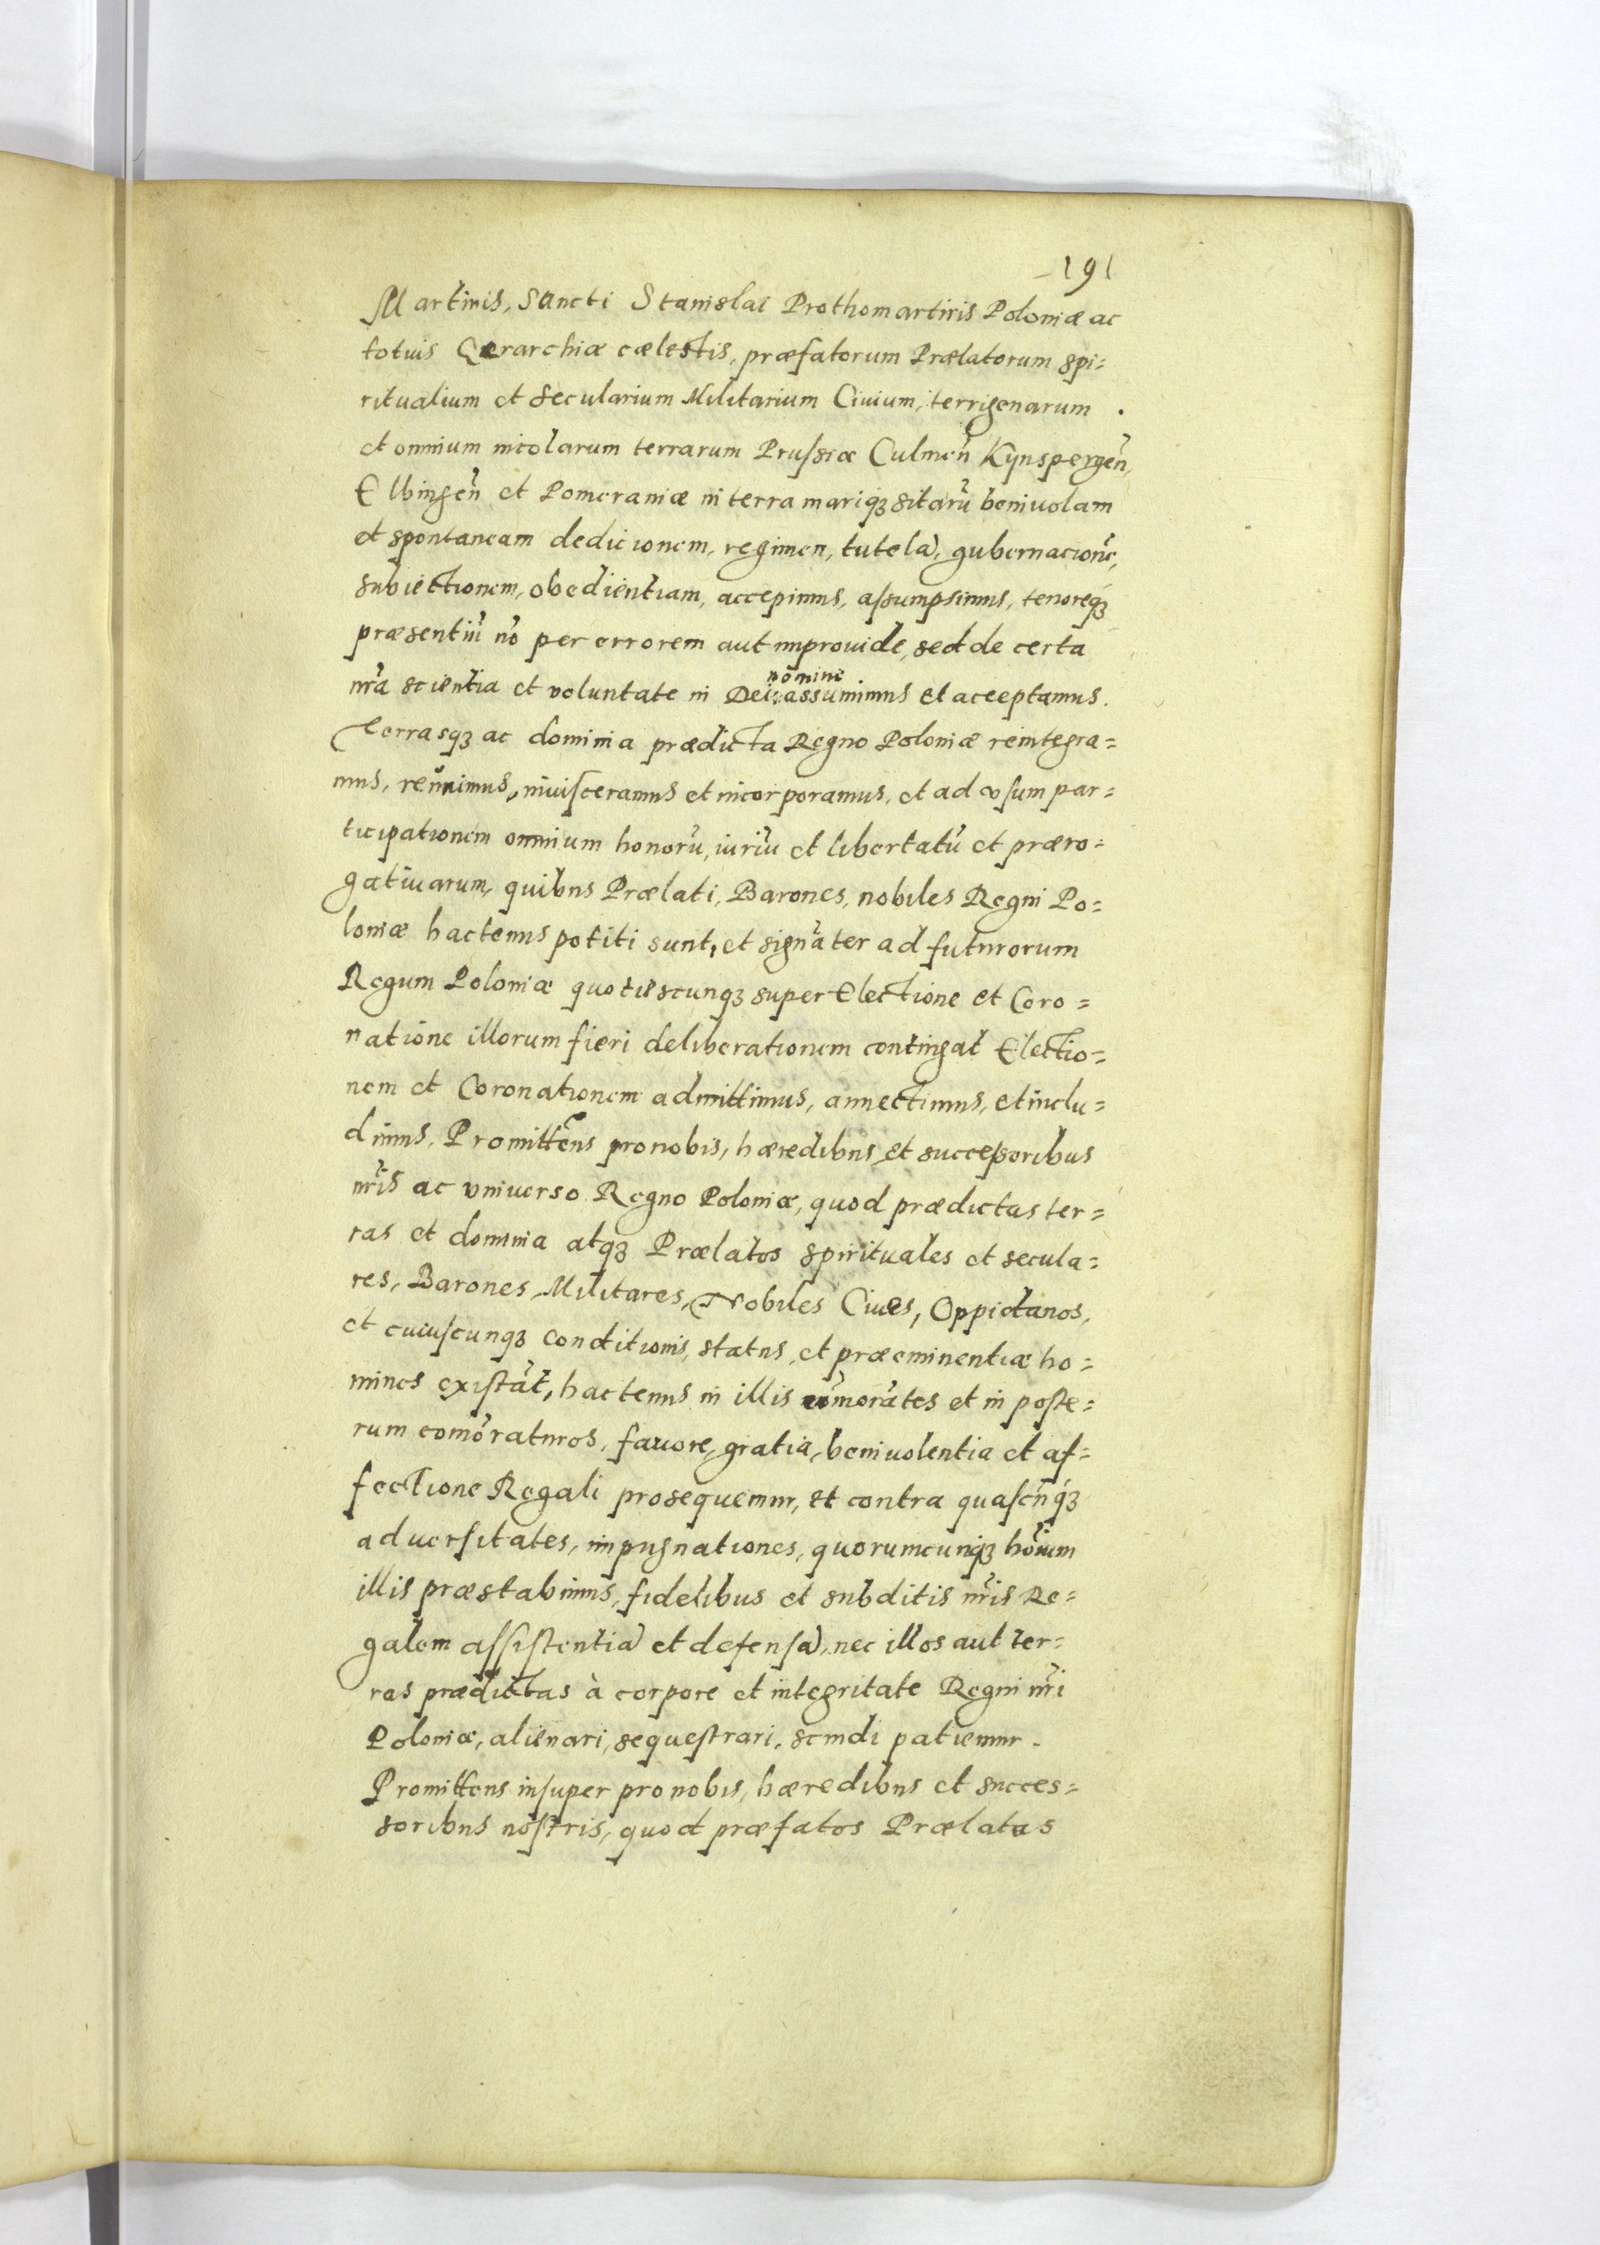 191
Martiris, Sancti Stanislai Prothomartiris Poloniæ ac
totius Qerarchiæ cælestis, præfatorum Prælatorum spi=
ritualium et secularium Militarium Ciuium, terrigenarum
et omnium incolarum terrarum Prussiæ Culmen̄ Kynspergen̄,
Elbingen̄ et Pomeraniæ in terra mariqȝ sitarū beniuolam
et spontaneam dedicionem, regimen, tutelā, gubernacionē,
subiectionem, obedientiam, accepimus, assumpsimus, tenoreqȝ
præsentiū nō per errorem aut improuide, sed de certa
nr̄a scientia et voluntate in Dei nomine assumimus et acceptamus.
Terrasqȝ ac dominia prædicta Regno Poloniæ reintegra=
mus, reūnimus, inuisceramus et incorporamus, et ad vsum par=
ticipationem omnium honorū, iuriū et libertatū et præro=
gatiuarum, quibus Prælati, Barones, nobiles Regni Po=
loniæ hactenus potiti sunt, et signāter ad futurorum
Regum Poloniæ quotiescunqȝ super Electione et Coro=
natione illorum fieri deliberationem contingat Electio=
nem et Coronationem admittimus, annectimus, et inclu=
dimus. Promittens pro nobis, hæredibus et successoribus
nr̄is ac vniuerso Regno Poloniæ, quod prædictas ter=
ras et dominia atqȝ Prælatos spirituales et secula=
res, Barones, Militares, Nobiles Ciues, Oppidanos,
et cuiuscunqȝ conditionis, status, et præeminentiæ ho=
mines existāt, hactenus in illis cōmorātes et in poste=
rum comōraturos, fauore, gratia, beniuolentia et af=
fectione Regali prosequemur, et contra quascūnqȝ
aduersitates, impugnationes, quorumcunqȝ hōium
illis præstabimus, fidelibus et subditis nr̄is Re=
galem assistentiā et defensā, nec illos aut ter=
ras prædictas à corpore et integritate Regni nr̄i
Poloniæ, alienari, sequestrari, scindi patiemur.
Promittens insuper pro nobis, hæredibus et succes=
soribus nostris, quod præfatos Prælatos